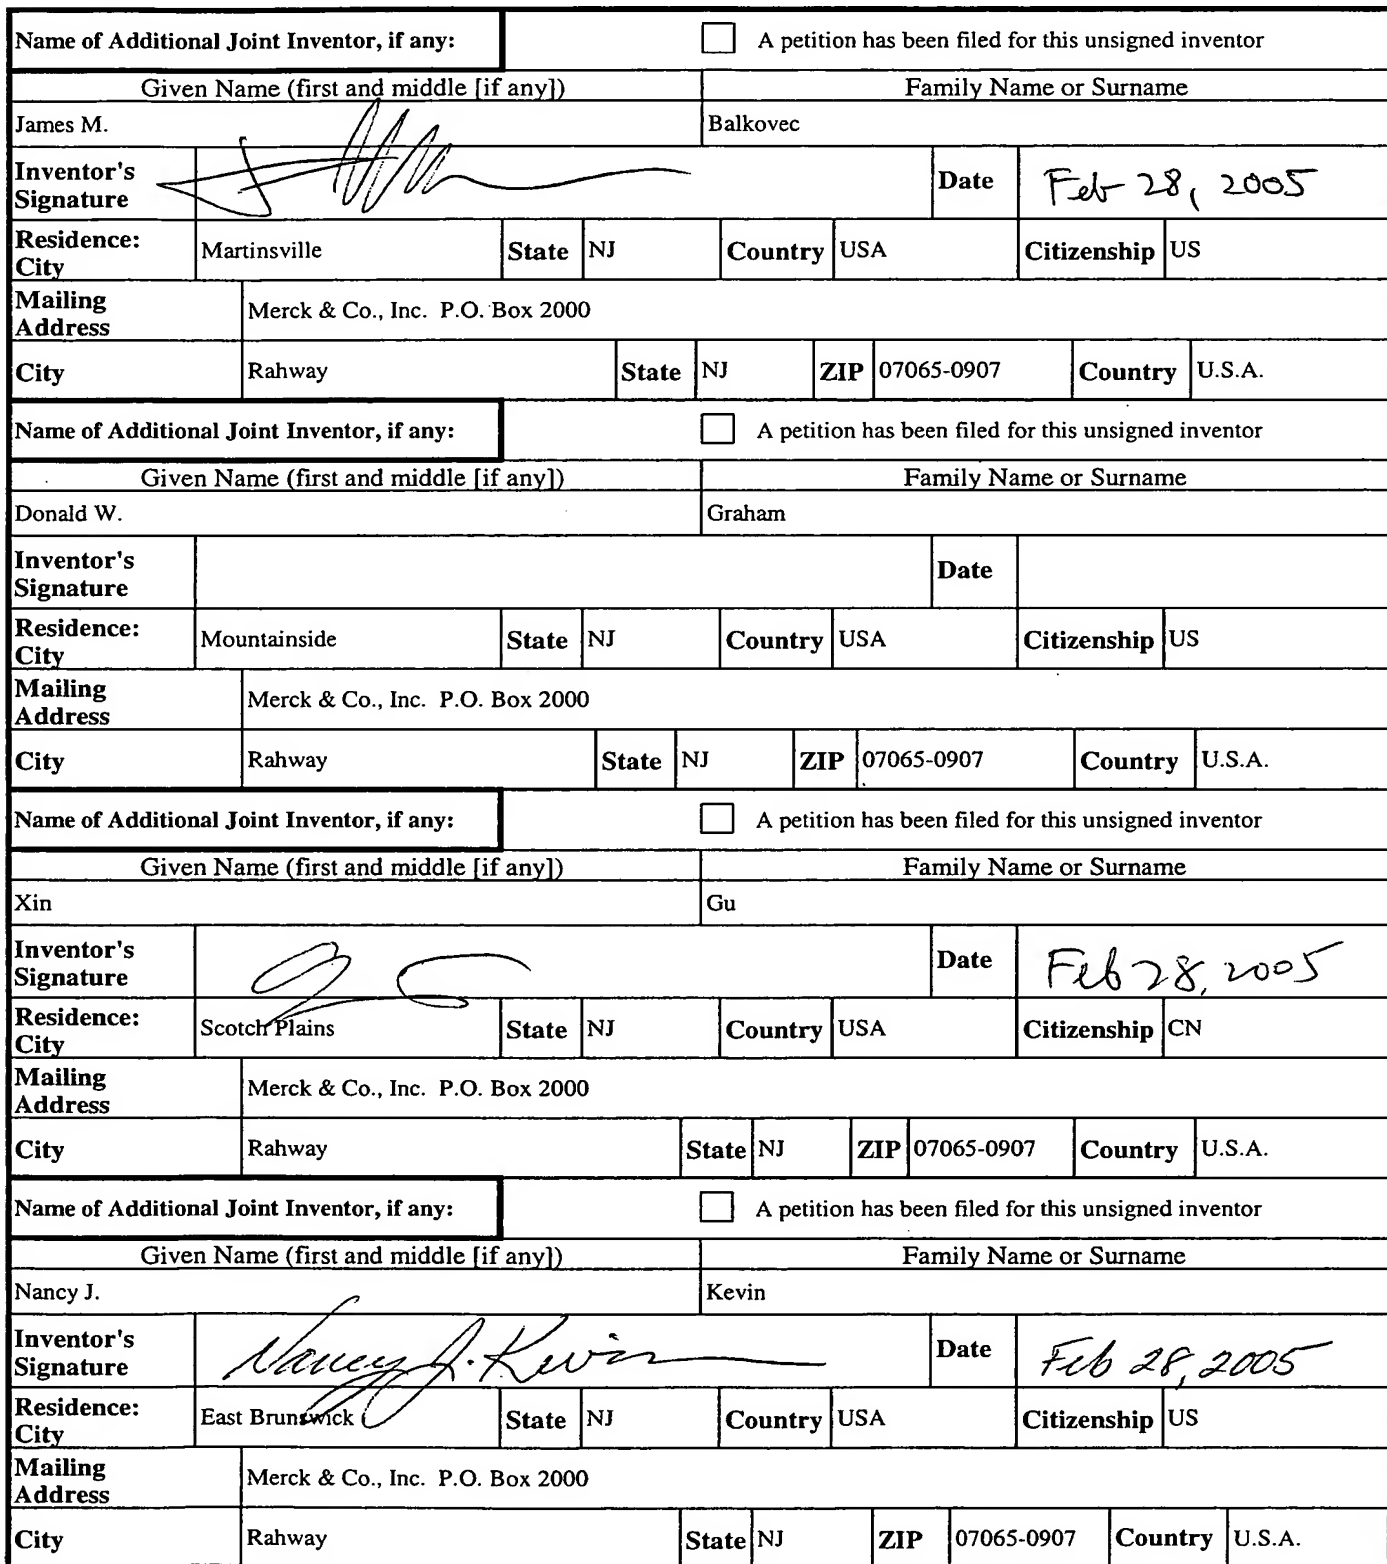 Name of Additional Joint Inventor, if any: A petition has been filed for this unsigned inventor
Given Name (first and middle [if any]) Family Name or Surname
James M. Balkovec
Inventor's Signature Date Feb 28, 2005
Residence: City Martinsville State NJ Country USA Citizenship US
Mailing Address Merck & Co., Inc. P.O. Box 2000
City Rahway State NJ ZIP 07065-0907 Country U.S.A.
Name of Additional Joint Inventor, if any: A petition has been filed for this unsigned inventor
Given Name (first and middle [if any]) Family Name or Surname
Donald W. Graham
Inventor's Signature Date
Residence: City Mountainside State NJ Country USA Citizenship US
Mailing Address Merck & Co., Inc. P.O. Box 2000
City Rahway State NJ ZIP 07065-0907 Country U.S.A.
Name of Additional Joint Inventor, if any: A petition has been filed for this unsigned inventor
Given Name (first and middle [if any]) Family Name or Surname
Xin Gu
Inventor's Signature Date Feb 28, 2005
Residence: City Scotch Plains State NJ Country USA Citizenship CN
Mailing Address Merck & Co., Inc. P.O. Box 2000
City Rahway State NJ ZIP 07065-0907 Country U.S.A.
Name of Additional Joint Inventor, if any: A petition has been filed for this unsigned inventor
Given Name (first and middle [if any]) Family Name or Surname
Nancy J. Kevin
Inventor's Signature Nancy J. Kevin Date Feb 28, 2005
Residence: City East Brunswick State NJ Country USA Citizenship US
Mailing Address Merck & Co., Inc. P.O. Box 2000
City Rahway State NJ ZIP 07065-0907 Country U.S.A.